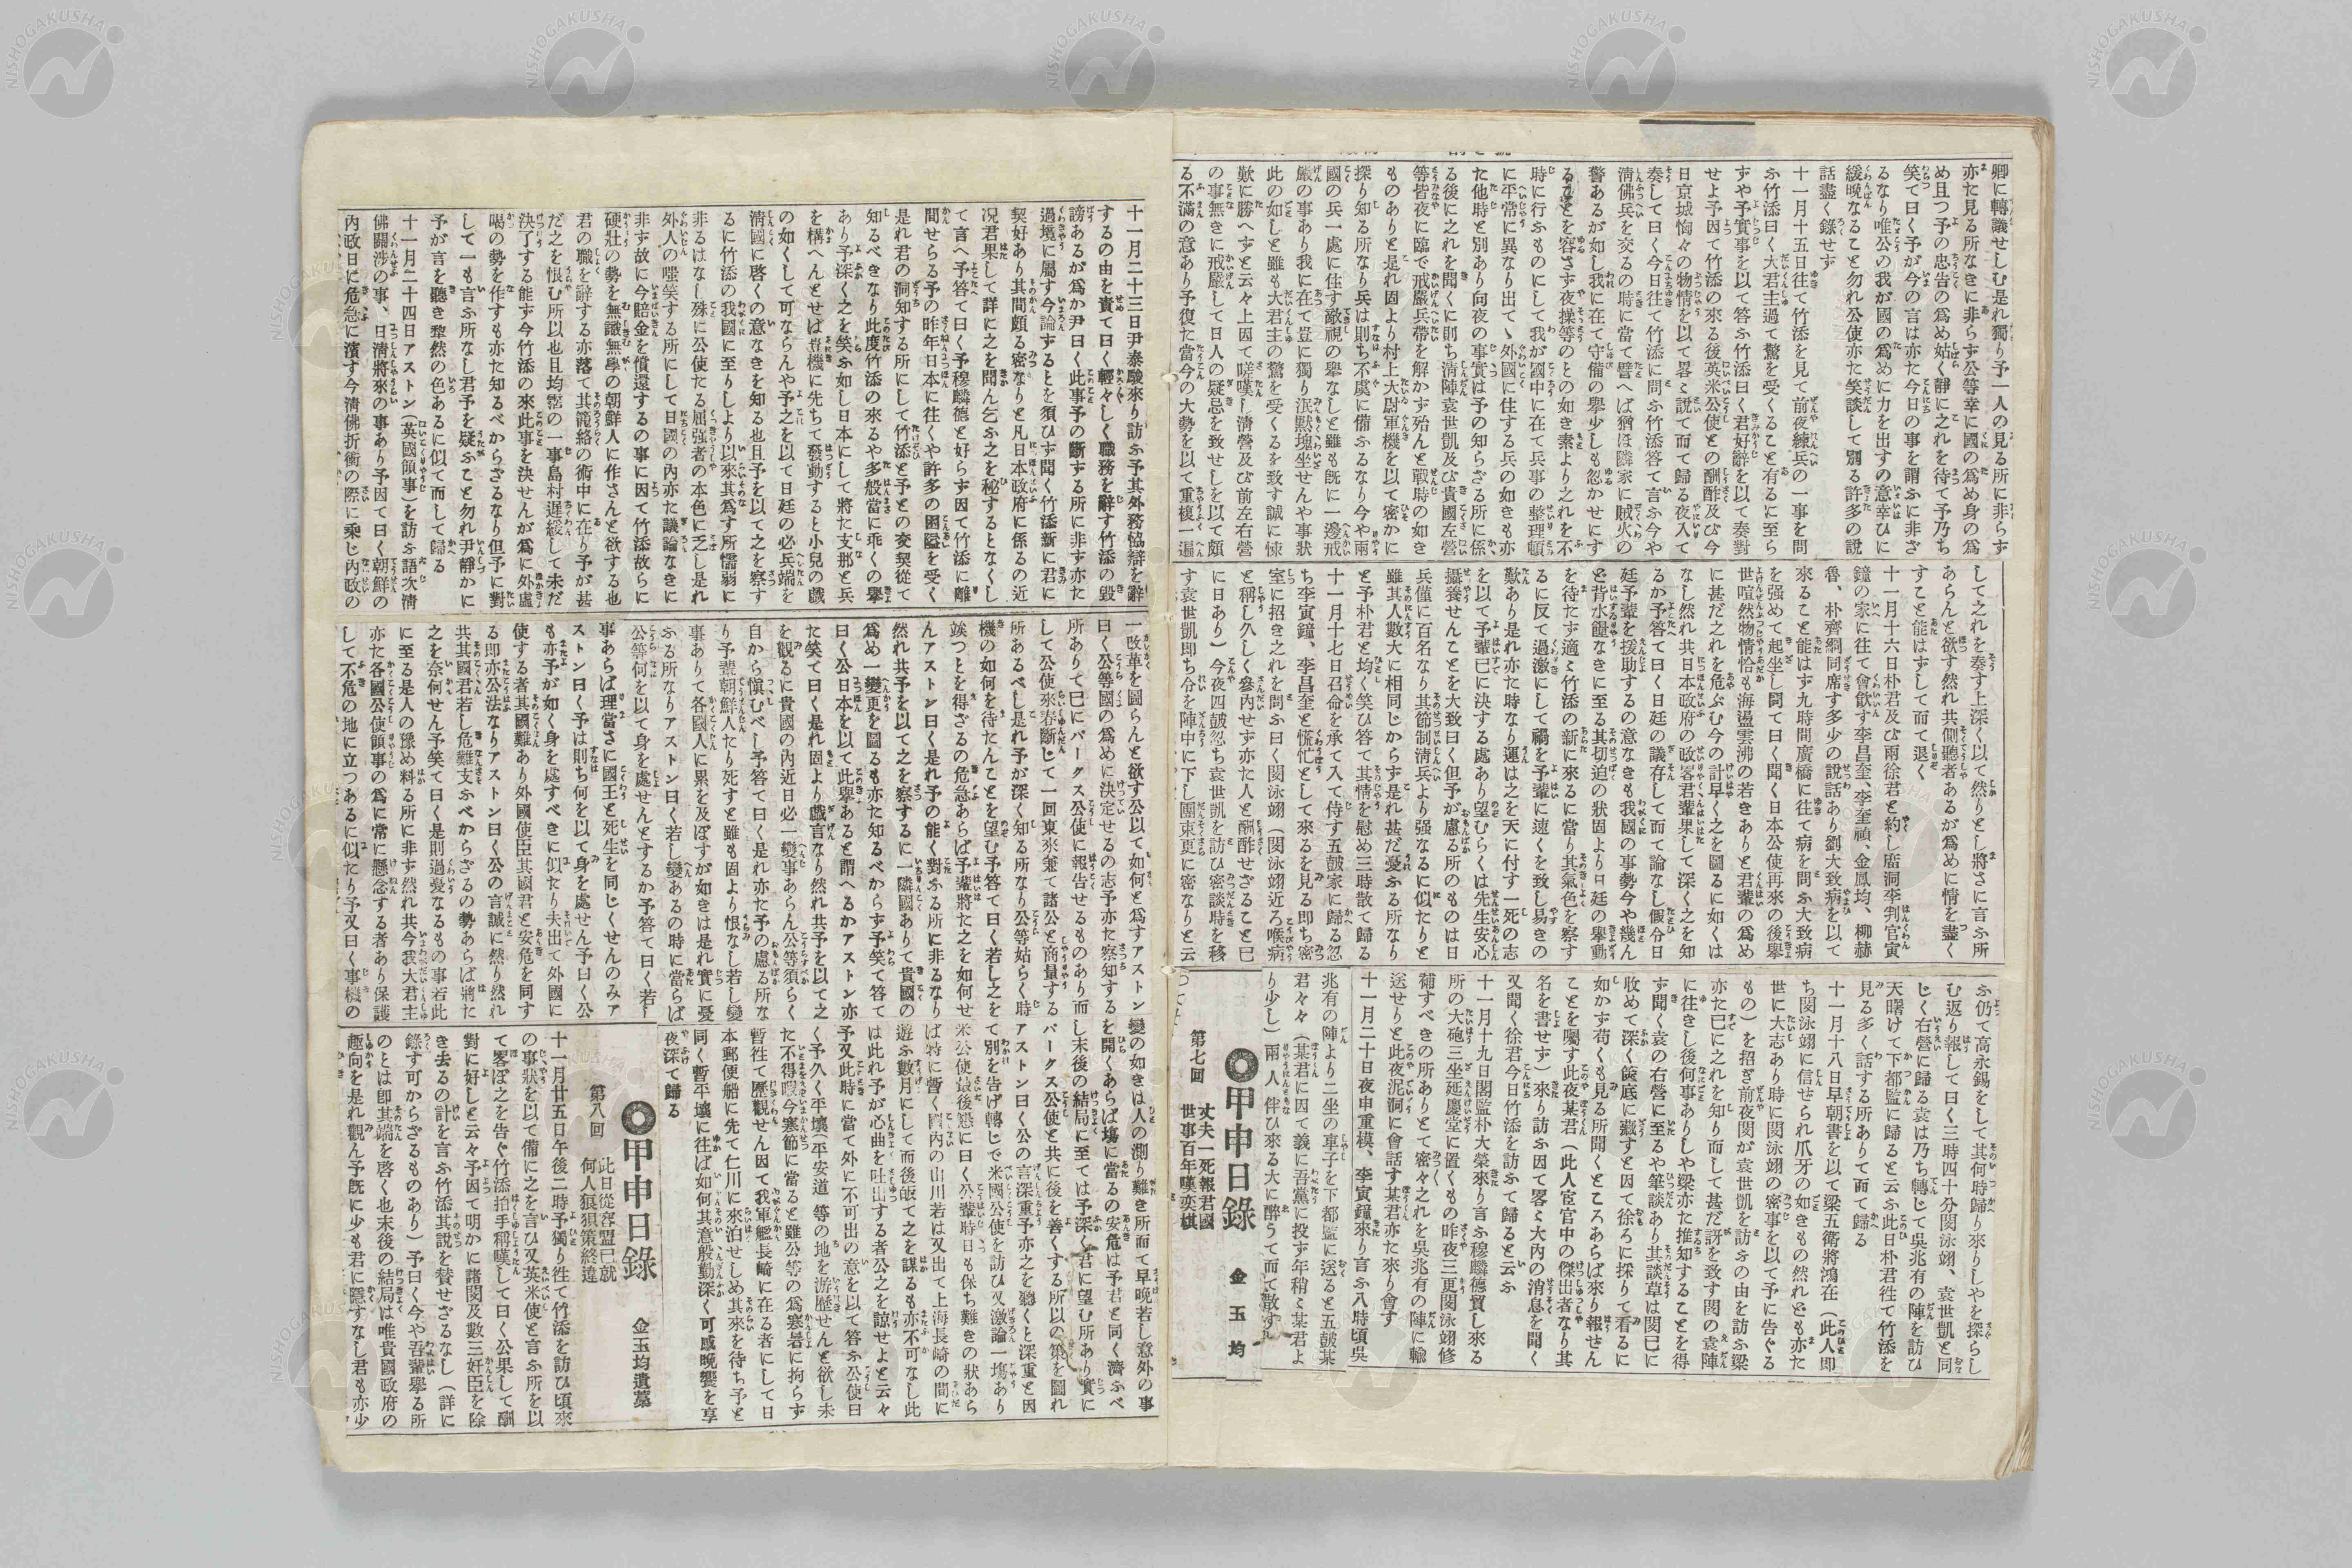 卿に轉議せしむ是れ獨り予一人の見る所に非らず
亦た見る所なきに非らず公等幸に國の爲め身の爲
め且つ予の忠告の爲め姑く靜に之れを待て予乃ち
笑て曰く予が今の言は亦た今日の事を謂ふに非ざ
るなり唯公の我が國の爲めに力を出すの意幸ひに
緩晩なること勿れ公使亦た笑談して別る許多の說
話盡く錄せず
十一月十五日往て竹添を見て前夜練兵の一事を問
ふ竹添曰く大君主過て驚を受くること有るに至ら
ずや予實事を以て答ふ竹添曰く君好辭を以て奏對
せよ予因て竹添の來る後英米公使との酬酢及び今
日京城恟々の物情を以て畧ミ說て而て歸る夜入て
奏して曰く今日往て竹添に問ふ竹添答て言ふ今や
淸佛兵を交るの時に當て譬へば猶ほ隣家に賊火の
警あるが如し我に在て守備の擧少しも忽かせにす
ることを容さず夜操等のとの如き素より之れを不
時に行ふものにして我が國中に在て兵事の整理頓
に平常に異なり出てゝ外國に住する兵の如きも亦
た他時と別あり向夜の事實は予の知らざる所に係
る後に之れを聞くに則ち淸陣袁世凱及び貴國左營
等皆夜に臨で戒嚴兵帶を解かず殆んと戰時の如き
ものありと是れ固より村上大尉軍機を以て密かに
探り知る所なり兵は則ち不虞に備ふるなり今や兩
國の兵一處に住す敵視の擧なしと雖も旣に一邊戒
嚴の事あり我に在て豈に獨り泯默塊坐せんや事狀
此の如しと雖も大君主の驚を受くるを致す誠に悚
歎に勝へずと云々上因て嗟嘆し淸營及び前左右營
の事無きに戒嚴して日人の疑忌を致せしを以て頗
る不滿の意あり予復た當今の大勢を以て重複一遍
して之れを奏す上深く以て然りとし將さに言ふ所
あらんと欲す然れ共側聽者あるが爲めに情を盡く
すこと能はずして而て退く
十一月十六日朴君及び兩徐君と約し廣洞李判官寅
鐘の家に往て會飮す李昌奎、李奎禎、金鳳均、柳赫
魯、朴齊絅同席す多少の說話あり劉大致病を以て
來ること能はず九時間廣橋に往て病を問ふ大致病
を强めて起坐し問て曰く聞く日本公使再來の後擧
世喧然物情恰も海盪雲沸の若きありと君輩の爲め
に甚だ之れを危ぶむ今の計早く之を圖るに如くは
なし然れ共日本政府の政畧君輩果して深く之を知
るか予答て曰く日廷の議存して而て論なし假令日
廷予輩を援助するの意なきも我國の事勢今や幾ん
ど背水餽なきに至る其切迫の狀固より日廷の擧動
を待たず適ミ竹添の新に來るに當り其氣色を察す
るに反て過激にして禍を予輩に速くを致し易きの
歎あり是れ亦た時なり運は之を天に付す一死の志
を以て予輩已に決する處あり望むらくは先生安心
攝養せんことを大致曰く但予が慮る所のものは日
兵僅に百名なり其節制淸兵より强なるに似たりと
雖其人數大に相同じからず是れ甚だ憂ふる所なり
と予朴君と均く笑ひ答て其情を慰め三時散て歸る
十一月十七日召命を承て入て侍す五皷家に歸る忽
ち李寅鐘、李昌奎と慌忙として來るを見る卽ち密
室に招き之れを問ふ曰く閔泳翊（閔泳翊近ろ喉病
と稱し久しく參內せず亦た人と酬酢せざること已
に日あり）今夜四皷忽ち袁世凱を訪ひ密談時を移
す袁世凱卽ち令を陣中に下し團束更に密なりと云
ふ仍て高永錫をして其何時歸り來りしやを探らし
む返り報して曰く三時四十分閔泳翊、袁世凱と同
じく右營に歸る袁は乃ち轉じて吳兆有の陣を訪ひ
天曙けて下都監に歸ると云ふ此日朴君徃て竹添を
見る多く話する所ありて而て歸る
十一月十八日早朝書を以て梁五衛將鴻在（此人卽
ち閔泳翊に信せられ爪牙の如きもの然れとも亦た
世に大志あり時に閔泳翊の密事を以て予に告ぐる
もの）を招ぎ前夜閔が袁世凱を訪ふの由を訪ふ梁
亦た已に之れを知り而して甚だ訝を致す閔の袁陣
に往きし後何事ありしや梁亦た推知することを得
ず聞く袁の右營に至るや筆談あり其談草は閔已に
收めて深く篋底に藏すと因て徐ろに採りて看るに
如かず苟くも見る所聞くところあらば來り報せん
ことを囑す此夜某君（此人宦官中の傑出者なり其
名を書せず）來り訪ふ因て畧ミ大內の消息を聞く
又聞く徐君今日竹添を訪ふて歸ると云ふ
十一月十九日閣監朴大榮來り言ふ穆麟德貿し來る
所の大砲三坐延慶堂に置くもの昨夜三更閔泳翊修
補すべきの所ありとて密々之れを吳兆有の陣に輸
送せりと此夜泥洞に會話す某君亦た來り會す
十一月二十日夜申重模、李寅鐘來り言ふ八時頃吳
兆有の陣より二坐の車子を下都監に送ると五皷某
君々々（某君に因て義に吾黨に投ず年稍ミ某君よ
り少し）兩人伴ひ來る大に醉うて而て散ず
◎甲申日錄　金玉均
第七回　丈夫一死報君國
世事百年嘆奕棋
十一月二十三日尹泰駿來り訪ふ予其外務協辯を辭
するの由を責て曰く輕々しく職務を辭す竹添の毀
謗あるが爲か尹曰く此事予の斷する所に非す亦た
過境に屬す今論するとを須ひず聞く竹添新に君に
契好あり其間頗る密なりと凡日本政府に係るの近
况君果して詳に之を聞ん乞ふ之を秘するとなくし
て言へ予答て曰く予穆麟德と好らず因て竹添に離
間せらる予の昨年日本に往くや許多の困隘を受く
是れ君の洞知する所にして竹添と予との交契從て
知るべきなり此度竹添の來るや多般當に乖くの擧
あり予深く之を笑ふ如し日本にして將た支那と兵
を構へんとせば豈機に先ちて發動すると小兒の戲
の如くして可ならんや予之を以て日廷の必兵端を
淸國に啓くの意なきを知る也且予を以て之を察す
るに竹添の我國に至りしより以來其爲す所懦弱に
非るはなし殊に公使たる屈强者の本色に乏し是れ
外人の嗤笑する所にして日國の內亦た議論なきに
非ず故に今賠金を償還するの事に因て竹添故らに
硬壯の勢を無識無學の朝鮮人に作さんと欲する也
君の職を辭する亦落て其籠絡の術中に在り予が甚
だ之を恨む所以也且均霑の一事島村遲緩して未だ
決了する能ず今竹添の來此事を決せんが爲に外虛
喝の勢を作すも亦た知るべからざるなり但予に對
して一も言ふ所なし君予を疑ふこと勿れ尹靜かに
予が言を聽き犂然の色あるに似て而して歸る
十一月二十四日アストン（英國領事）を訪ふ語次淸
佛關涉の事、日淸將來の事あり予因て曰く朝鮮の
內政日に危急に濱す今淸佛折衝の際に乘じ內政の
一改革を圖らんと欲す公以て如何と爲すアストン
曰く公等國の爲めに決定せるの志予亦た察知する
所ありて已にパークス公使に報告せるものあり而
して公使來春斷じて一回東來兼て諸公と商量する
所あるべし是れ予が深く知る所なり公等姑らく時
機の如何を待たんことを望む予答て曰く若し之を
竢つとを得ざるの危急あらば予輩將た之を如何せ
んアストン曰く是れ予の能く對ふる所に非るなり
然れ共予を以て之を察するに一隣國ありて貴國の
爲め一變更を圖るも亦た知るべからず予笑て答て
曰く公日本を以て此擧あると謂へるかアストン亦
た笑て曰く是れ固より戲言なり然れ共予を以て之
を觀るに貴國の內近日必一變事あらん公等須らく
自から愼むべし予答て曰く是れ亦た予の慮る所な
り予輩朝鮮人たり死すと雖も固より恨なし若し變
事ありて各國人に累を及ぼすが如きは是れ實に憂
ふる所なりアストン曰く若し變あるの時に當らば
公等何を以て身を處せんとするか予答て曰く若し
事あらば理當さに國王と死生を同じくせんのみア
ストン曰く予は則ち何を以て身を處せん予曰く公
も亦予が如く身を處すべきに似たり夫出て外國に
使する者其國難あり外國使臣其國君と安危を同す
る卽亦公法なりアストン曰く公の言誠に然り然れ
共其國君若し危難支ふべからざるの勢あらば將た
之を奈何せん予笑て曰く是則過憂なるもの事若此
に至る是人の豫め料る所に非す然れ共今我大君主
亦た各國公使領事の爲に常に懸念する者あり保護
して不危の地に立つあるに似たり予又曰く事機の
變の如きは人の測り難き所而て早晩若し意外の事
を開くあらば塲に當るの安危は予君と同く濟ふべ
し末後の結局に至ては予深く君に望む所あり實に
パークス公使と共に後を善くする所以の策を圖れ
アストン曰く公の言深重予亦之を聽くと深重と因
て別を告げ轉じて米國公使を訪ひ又激論一塲あり
米公使最後懇に曰く公輩時日も保ち難きの狀あら
ば特に暫く國內の山川若は又出て上海長崎の間に
遊ふ數月にして而後皈て之を謀るも亦不可なし此
は此れ予が心曲を吐出する者公之を諒せよと云々
予又此時に當て外に不可出の意を以て答ふ公使曰
く予久く平壤（平安道）等の地を游歷せんと欲し未
た不得暇今寒節に當ると雖公等の爲寒暑に拘らず
暫往て歷觀せん因て我軍艦長崎に在る者にして日
本郵便船に先て仁川に來泊せしめ其來を待ち予と
同く暫平壤に往ば如何其意殷勤深く可感晩饗を享
夜深て歸る
◎甲申日錄　金玉均遺藁
第八回　此日從容盟已就
何人狼狽策終違
十一月廿五日午後二時予獨り徃て竹添を訪ひ頃來
の事狀を以て備に之を言ひ又英米使と言ふ所を以
て畧ぼ之を告ぐ竹添拍手稱嘆して曰く公果して酬
對に好しと云々予因て明かに諸閔及數三奸臣を除
き去るの計を言ふ竹添其說を贊せざるなし（詳に
錄す可からざるものあり）予曰く今や吾輩擧る所
のとは卽其端を啓く也末後の結局は唯貴國政府の
趣向を是れ觀ん予旣に少も君に隱すなし君も亦少